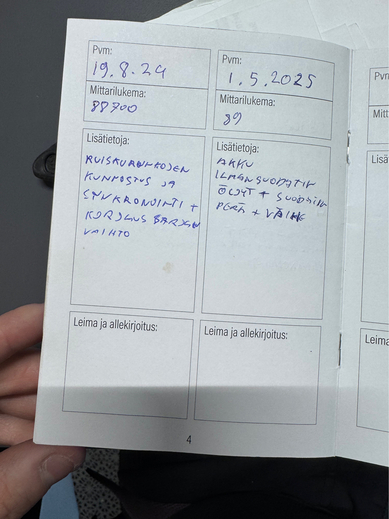 Pvm:
19.8.24
Mittarilukema:
88700
Lisätietoja:
RUISKURUNKOJEN
KUNNOSTUS JA
SYNKRONOINTI +
KORJAUS SARJAN
VAIHTO
Leima ja allekirjoitus:
Pvm:
1.5.2025
Mittarilukema:
89
Lisätietoja:
AKKU
ILMANSUODATIN
ÖLJYT + SUODATIN
PERÄ +
Leima ja allekirjoitus:
4
Pvn
Mitt
Lisä
Leima